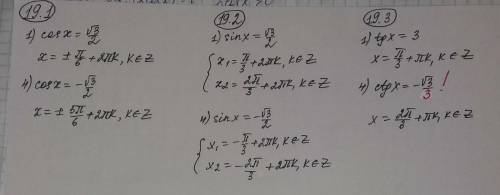 19.1
1) cosx = √3/2
x = ± π/6 + 2πk, k∈Z
4) cosx = -√3/2
x = ± 5π/6 + 2πk, k∈Z
19.2
1) sinx = √3/2
{ x₁ = π/3 + 2πk, k∈Z
x₂ = 2π/3 + 2πk, k∈Z
4) sinx = -√3/2
{ x₁ = -π/3 + 2πk, k∈Z
x₂ = -2π/3 + 2πk, k∈Z
19.3
1) tgx = 3
x = π/3 + πk, k∈Z
4) ctgx = -√3/3 !
x = 2π/3 + πk, k∈Z